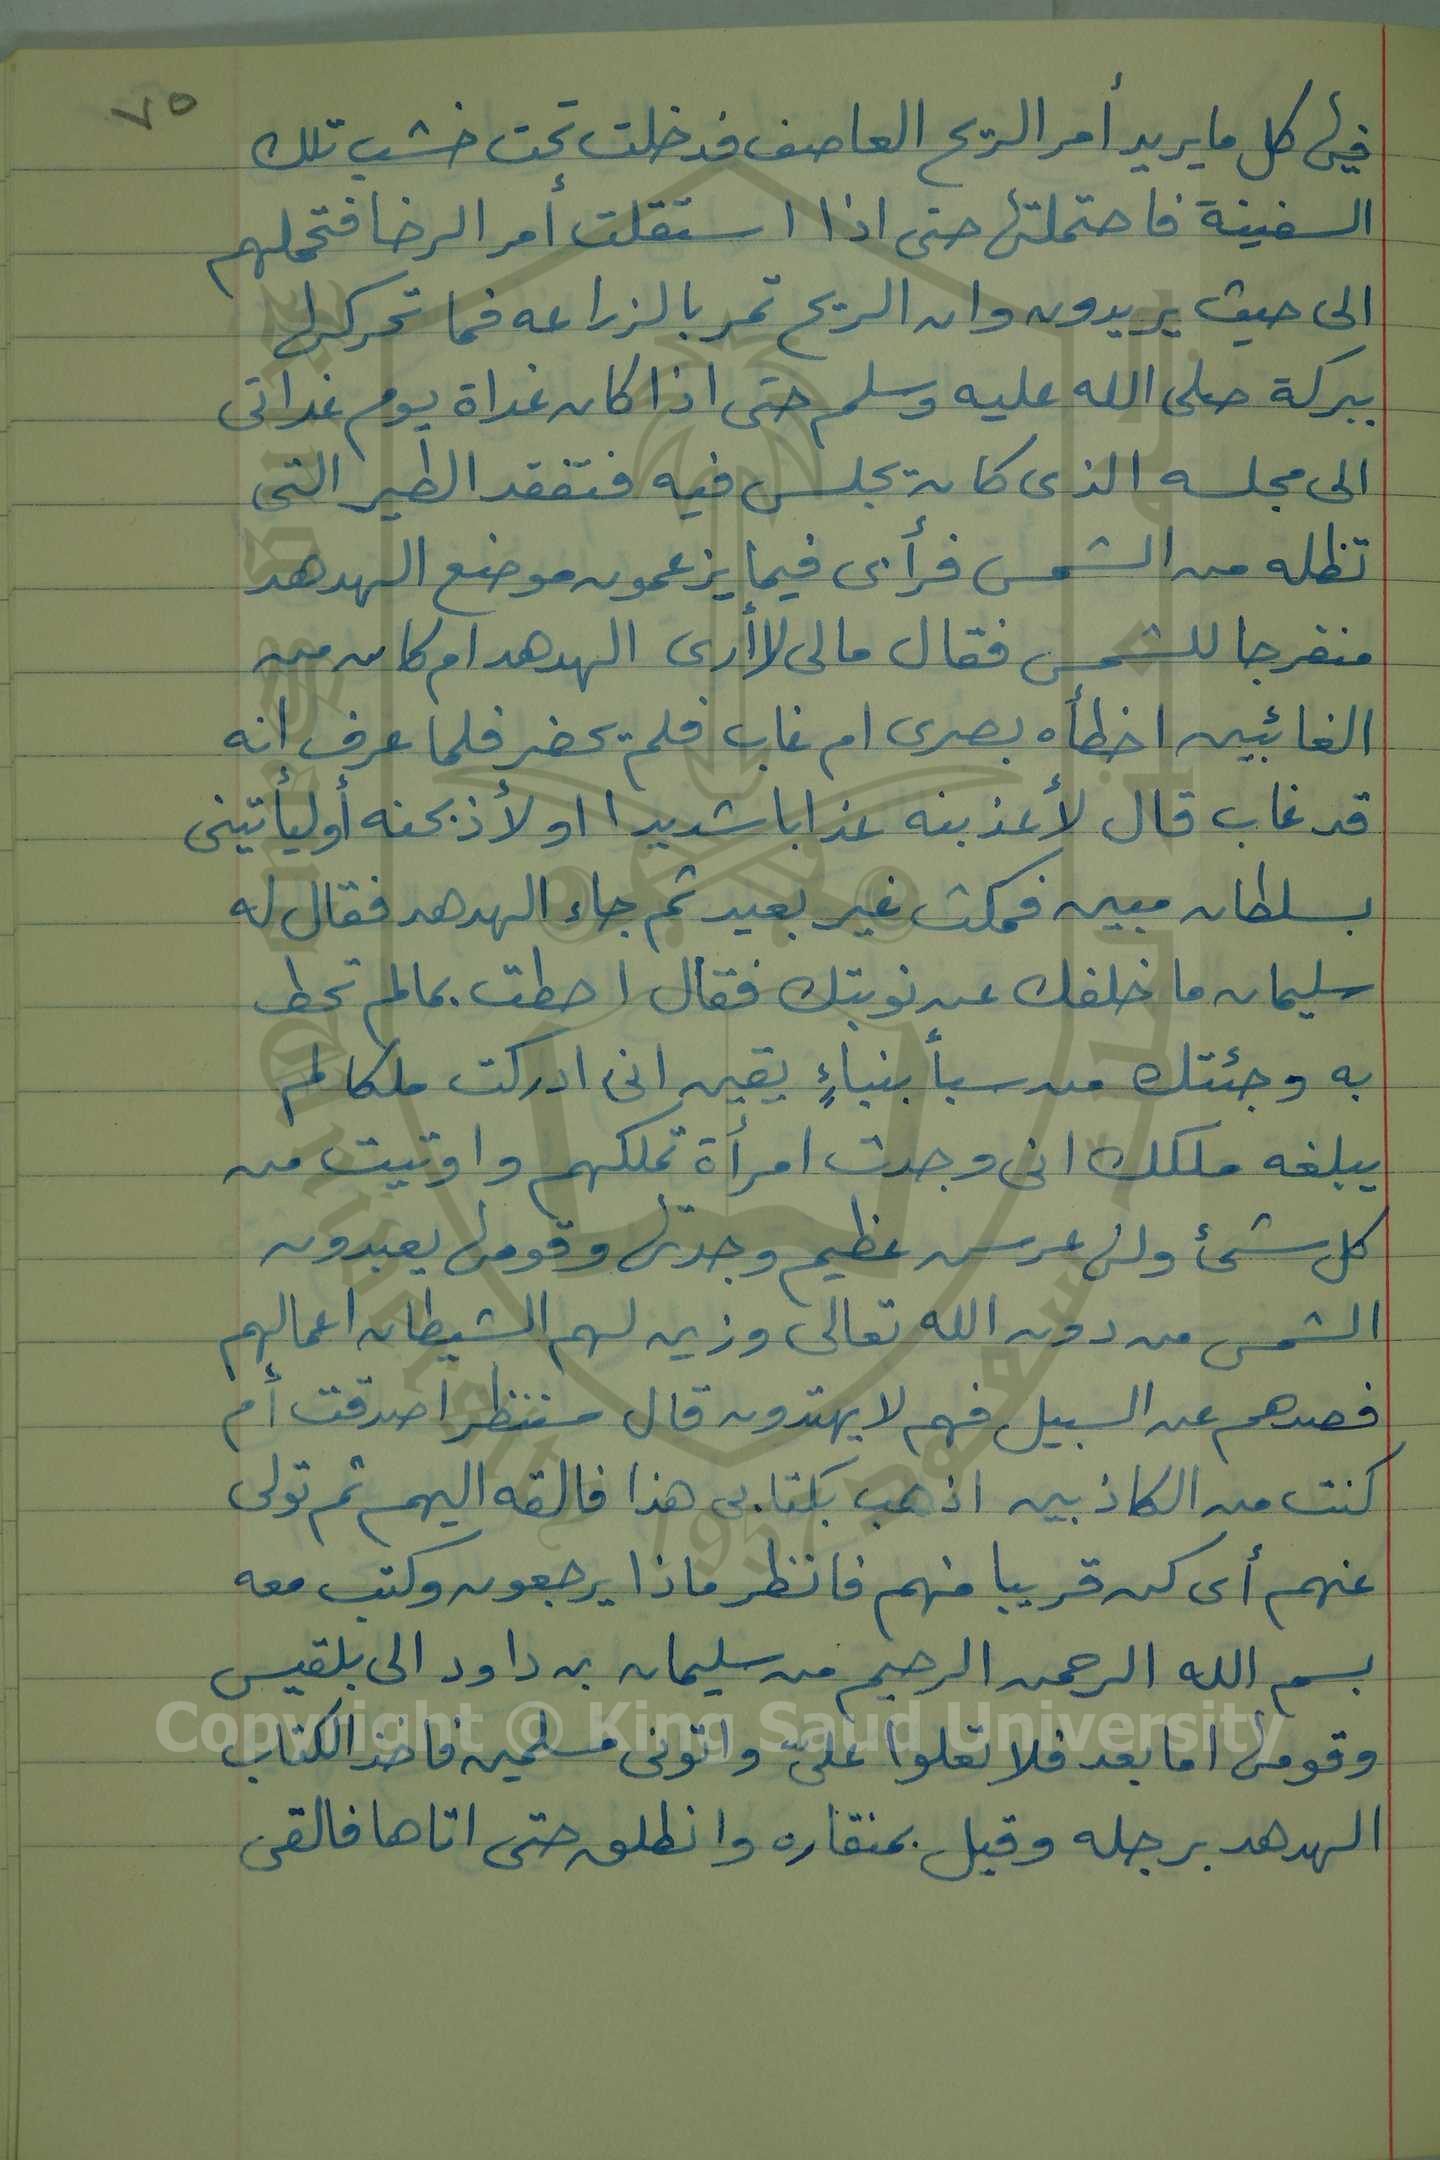 ٧٥
فيها كل ما يريد أمر الريح العاصف فدخلت تحت خشب تلك
السفينة فاحتملتها حتى اذا استقلت أمر الرخا فتحملهم
الى حيث يريدون وان الريح تمر بالزراعه فما تحركها
ببركة صلى الله عليه وسلم حتى اذا كان غداة يوم غداتى
الى مجلسه الذى كان يجلس فيه فتفقد الطير التى
تظله من الشمس فرأى فيما يزعمون موضع الهدهد
منفرجا للشمس فقال مالى لا أرى الهدهد ام كان من
الغائبين اخطأه بصرى ام غاب فلم يحضر فلما عرف انه
قد غاب قال لأعذبنه عذابا شديدا او لأذبحنه أو ليأتينى
بسلطان مبين فمكث غير بعيد ثم جاء الهدهد فقال له
سليمان ما خلفك عن نوبتك فقال احطت بما لم تحط
به وجئتك من سبأ بنباءٍ يقين انى ادركت ملكا لم
يبلغه ملكك انى وجدت امرأة تملكهم واوتيت من
كل شئ ولها عرس عظيم وجدتها وقومها يعبدون
الشمس من دون الله تعالى وزين لهم الشيطان اعمالهم
فصدهم عن السبيل فهم لا يهتدون قال سننظر اصدقت أم
كنت من الكاذبين اذهب بكتابى هذا فالقه اليهم ثم تولى
عنهم أى كن قريبا منهم فانظر ماذا يرجعون وكتب معه
بسم الله الرحمن الرحيم من سليمان بن داود الى بلقيس
وقومها اما بعد فلا تعلوا علىّ واتونى مسلمين فاخذ الكتاب
الهدهد برجله وقيل بمنقاره وانطلق حتى اتاها فالقى
Copyright © King Saud University